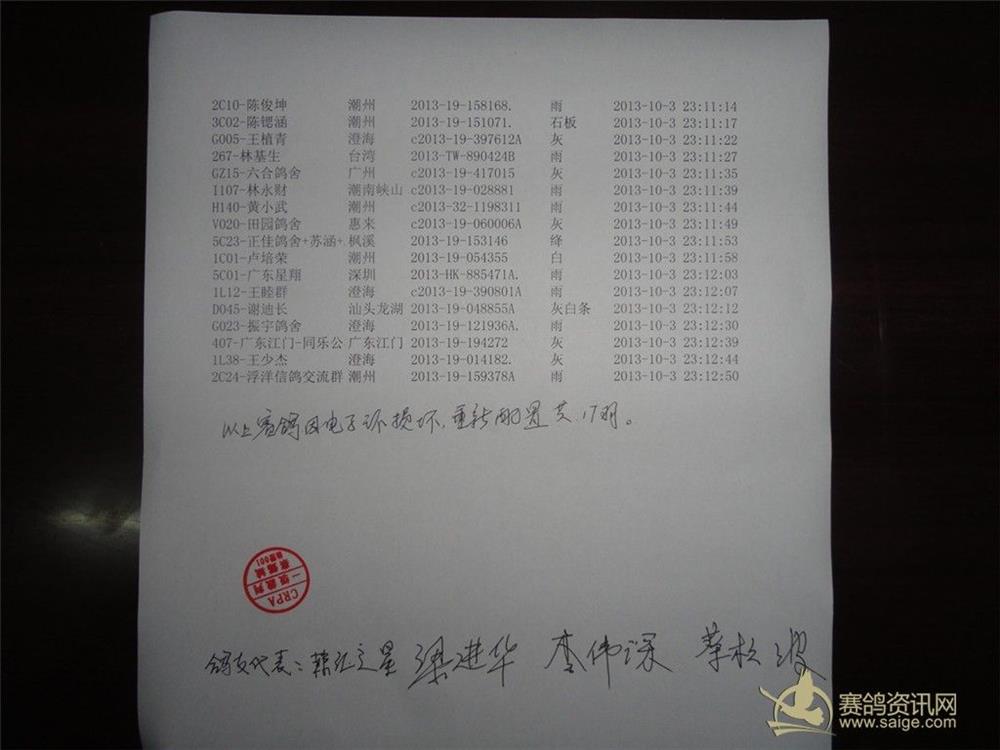 2C10-陈俊坤 潮州 2013-19-158168. 雨 2013-10-3 23:11:14
3C02-陈锶涵 潮州 2013-19-151071. 石板 2013-10-3 23:11:17
G005-王植青 澄海 c2013-19-397612A 灰 2013-10-3 23:11:22
267-林基生 台湾 2013-TW-890424B 雨 2013-10-3 23:11:27
GZ15-六合鸽舍 广州 c2013-19-417015 灰 2013-10-3 23:11:35
I107-林永财 潮南峡山 c2013-19-028881 雨 2013-10-3 23:11:39
H140-黄小武 潮州 c2013-32-1198311 雨 2013-10-3 23:11:44
V020-田园鸽舍 惠来 c2013-19-060006A 灰 2013-10-3 23:11:49
5C23-正佳鸽舍+苏涵+. 枫溪 2013-19-153146 绛 2013-10-3 23:11:53
1C01-卢培荣 潮州 2013-19-054355 白 2013-10-3 23:11:58
5C01-广东星翔 深圳 2013-HK-885471A. 雨 2013-10-3 23:12:03
1L12-王睦群 澄海 c2013-19-390801A 雨 2013-10-3 23:12:07
D045-谢迪长 汕头龙湖 2013-19-048855A 灰白条 2013-10-3 23:12:12
G023-振宇鸽舍 澄海 2013-19-121936A. 雨 2013-10-3 23:12:30
407-广东江门-同乐公 广东江门 2013-19-194272 灰 2013-10-3 23:12:39
1L38-王少杰 澄海 2013-19-014182. 灰 2013-10-3 23:12:44
2C24-浮洋信鸽交流群 潮州 2013-19-159378A 雨 2013-10-3 23:12:50
以上赛鸽因电子环损坏,重新配置共17羽。
CRPA
一级裁判
鸽友代表:韩江之星 梁进华 李伟深
赛鸽资讯网
www.saige.com